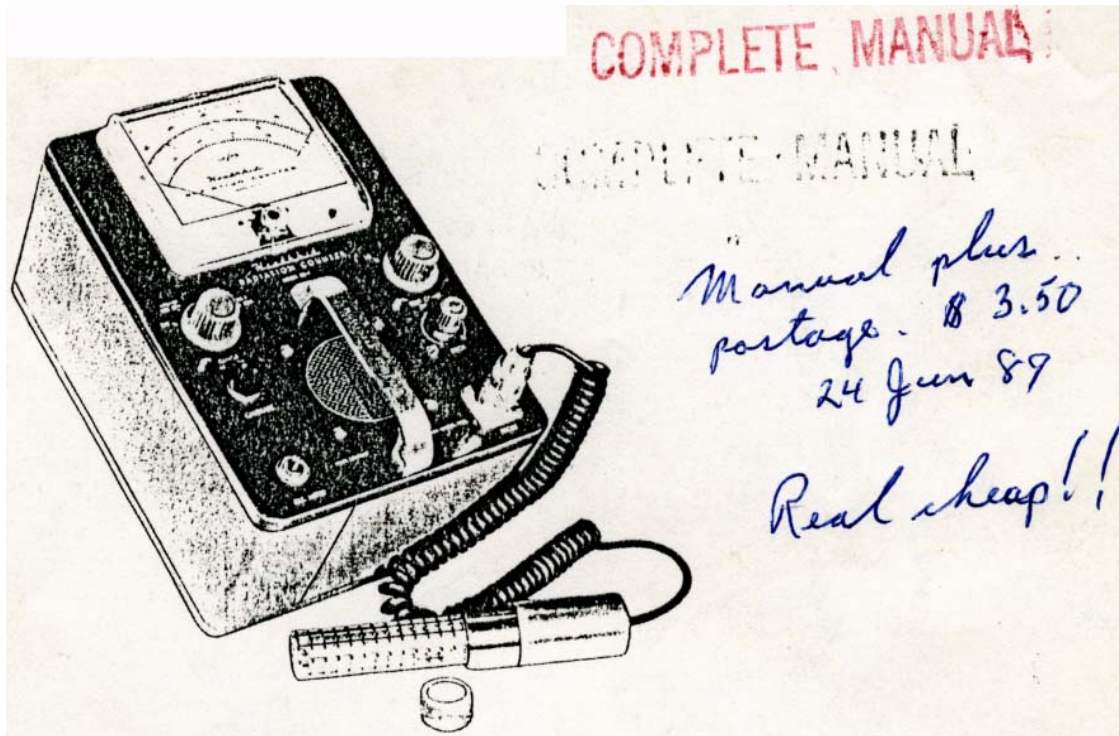 COMPLETE MANUAL
COMPLETE MANUAL
Manual plus
postage. $ 3.50
24 Jun 89
Real cheap!!
RADIATION COUNTER